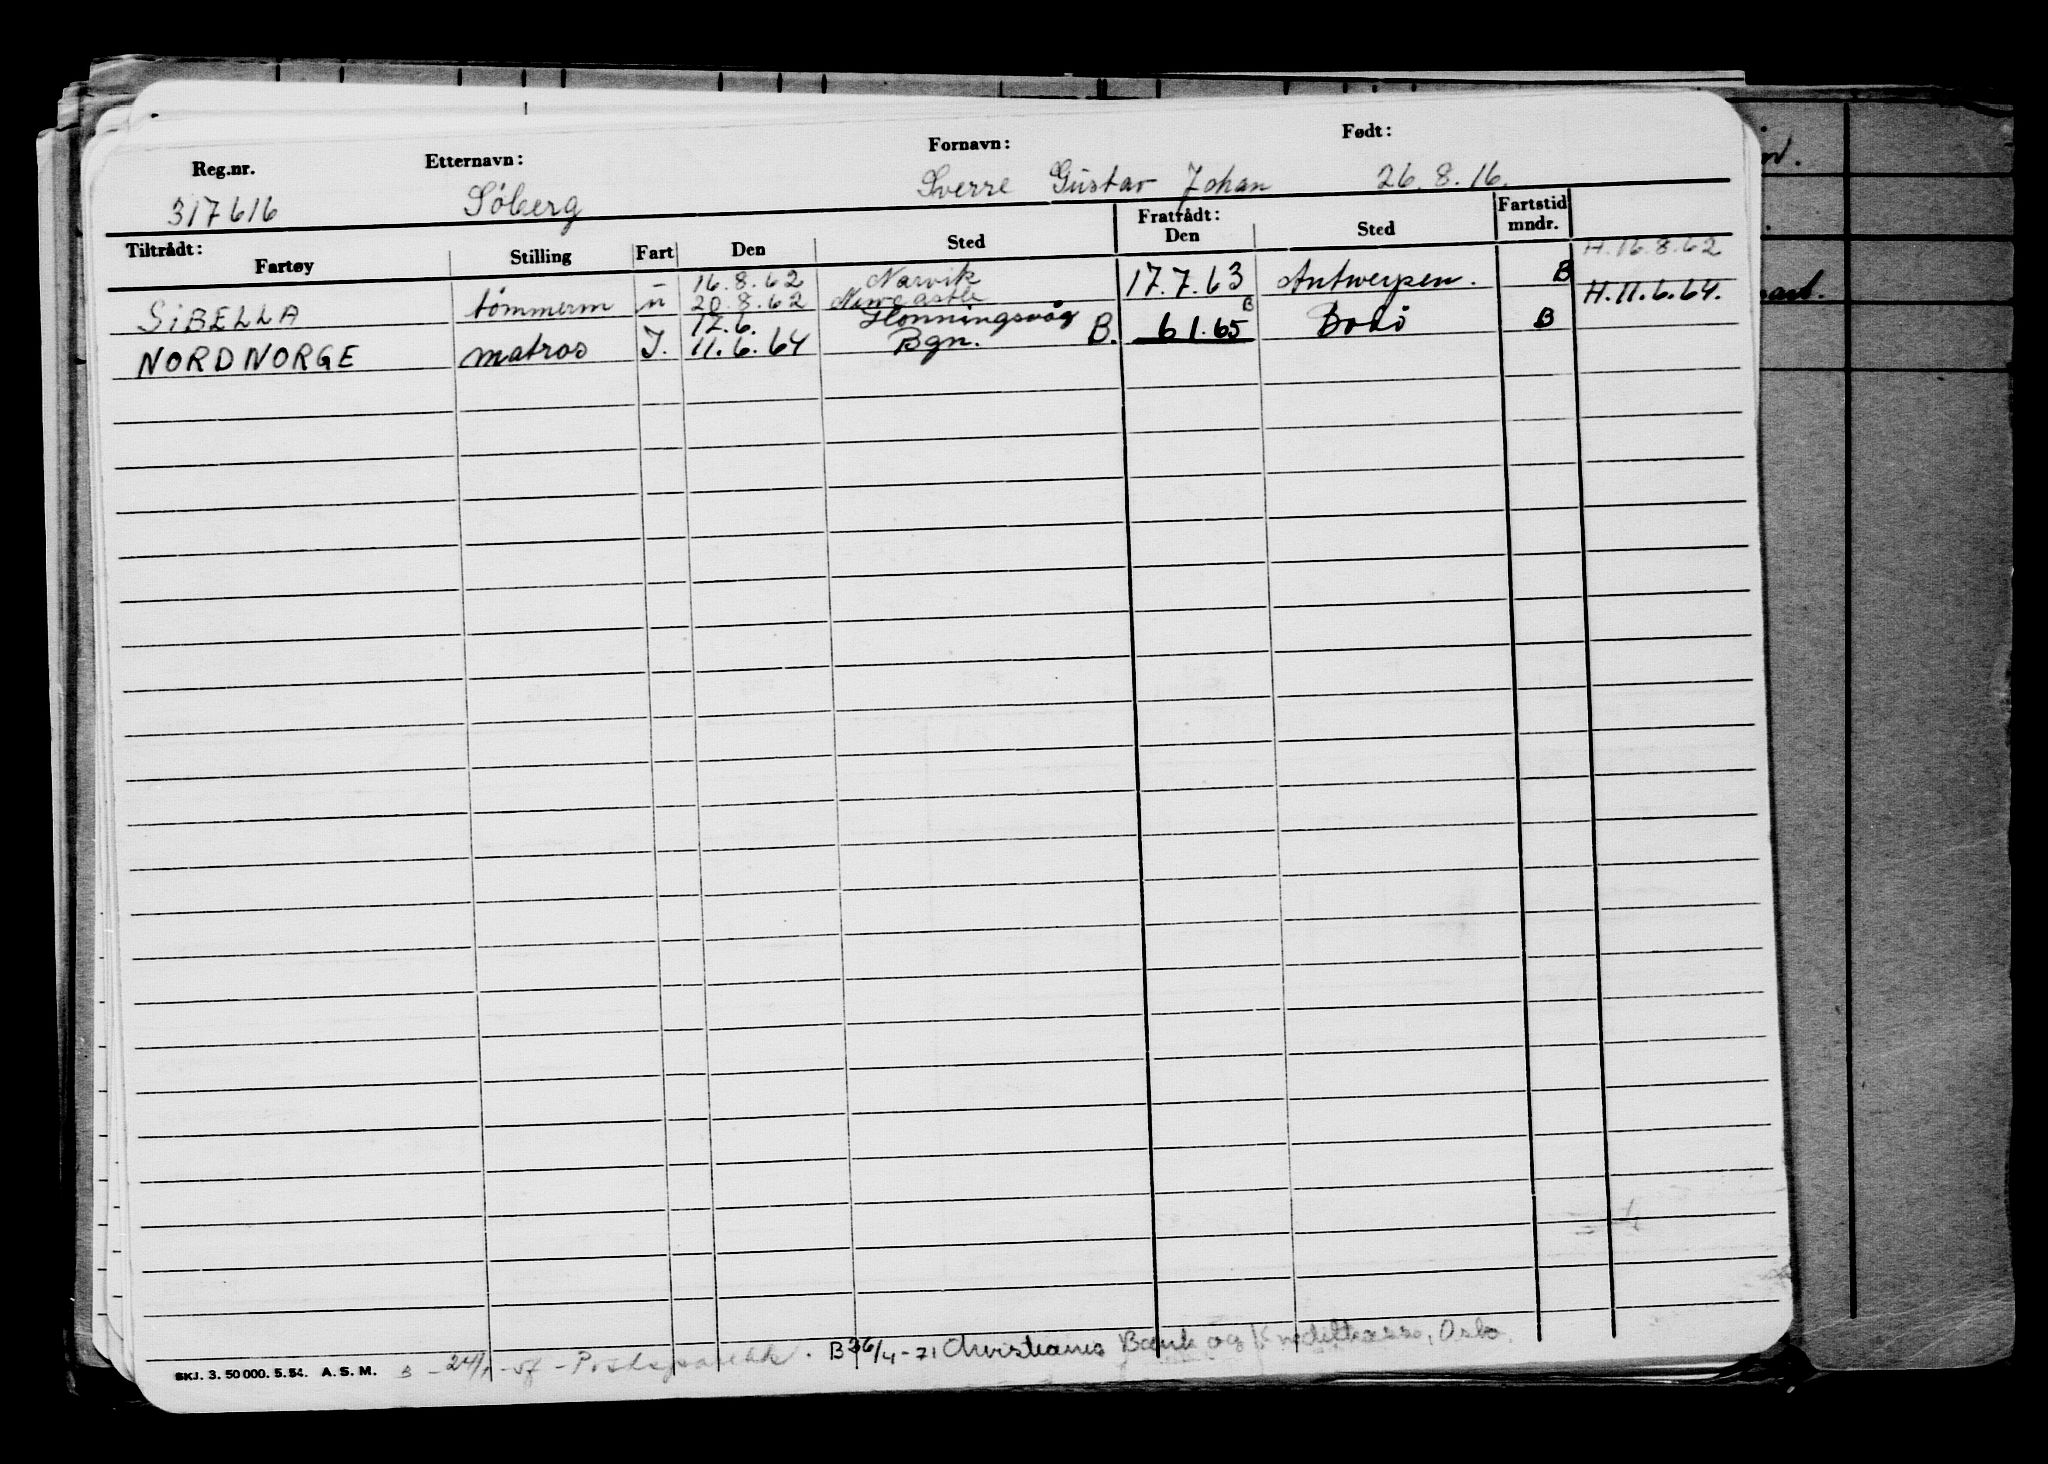 Reg.nr. Etternavn: Fornavn: Født:
317616 Söberg Sverre Gustav Johan 26.8.16.
Tiltrådt: Fratrådt: Fartstid
Fartøy Stilling Fart Den Sted Den Sted mndr.
H.16.8.62
- 16.8.62 Narvik
SIBELLA tömmerm u 20.8.62 Newcastle 17.7.63 Antwerpen. B H.11.6.64.
12.6. Honningsvåg B
NORDNORGE matros I. 11.6.64 Bgn. B. 6 1.65 Bodö B
SKJ. 3. 50 000. 5. 54. A. S. M. B - 24/1-57 - Postsparebk. B 26/4-71 Christiania Bank og Kreditkasse, Oslo.